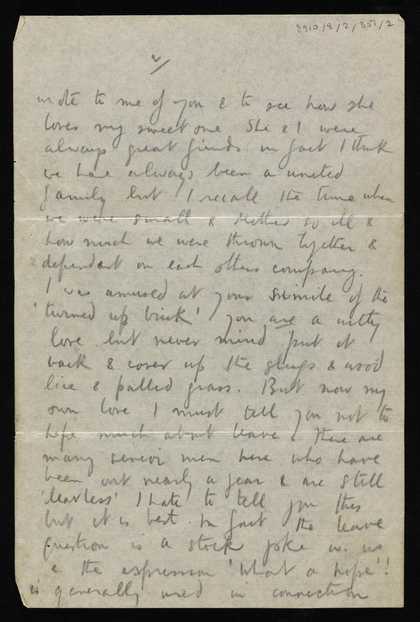 3910/8/2/351/2
2/
wrote to me of you & to see how she
loves my sweet one. She & I were
always great friends in fact I think
we have always been a united
family but I recall the time when
we were small & Mother so ill &
how much we were thrown together &
dependent on each others company.
I was amused at your simile of the
'turned up brick' you are a witty
love but never mind put it
back & cover up the slugs & wood
lice & palled grass. But now my
own love I must tell you not to
hope much about leave. There are
many senior men here who have
been out nearly a year & are still
'leavless' I hate to tell you this
but it is best. In fact the leave
question is a stock joke w. us
& the expression 'What a hope'!
is generally used in connection